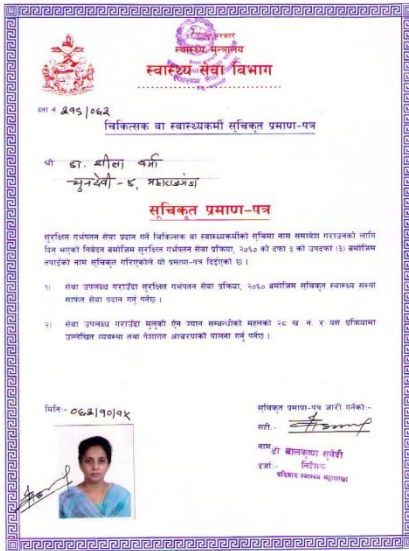 स्वास्थ्य मन्त्रालय
स्वास्थ्य सेवा विभाग
दर्ता नं २९६/०६२
चिकित्सक वा स्वास्थ्यकर्मी सूचिकृत प्रमाण-पत्र
श्री डा. शीला वर्मा
सूचिकृत प्रमाण-पत्र
सुरक्षित गर्भपतन सेवा प्रदान गर्ने चिकित्सक वा स्वास्थ्यकर्मीको सूचिमा नाम समावेश गराउनको लागि
दिन भएको निवेदन बमोजिम सुरक्षित गर्भपतन सेवा प्रक्रिया, २०६० को दफा ३ को उपदफा (३) बमोजिम
तपाईको नाम सूचिकृत गरिएकोले यो प्रमाण-पत्र दिईएको छ ।
१) सेवा उपलब्ध गराउँदा सुरक्षित गर्भपतन सेवा प्रक्रिया, २०६० बमोजिम सूचिकृत स्वास्थ्य संस्था
मार्फत सेवा प्रदान गर्नु पर्नेछ ।
२) सेवा उपलब्ध गराउँदा मुलुकी ऐन ज्यान सम्बन्धीको महलको २८ ख. नं. र यस प्रक्रियामा
उल्लेखित व्यवस्था तथा पेशागत आचरणको पालना गर्नु पर्नेछ ।
मिति:- ०६२/१०/१५
सूचिकृत प्रमाण-पत्र जारी गर्नेको:-
सही:-
नाम डा बालकृष्ण सुवेदी
दर्जा:- निर्देशक
परिवार स्वास्थ्य महाशाखा